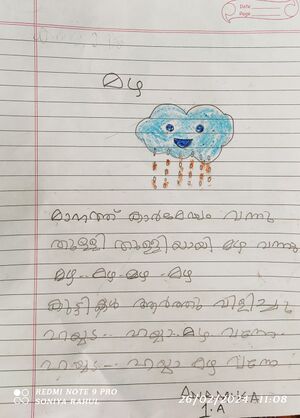 Date
Page
മഴ
മാനത്ത് കാർമേഘം വന്നു
തുള്ളി തുള്ളിയായി മഴ വന്നു
മഴ-മഴ-മഴ-മഴ
കുട്ടികൾ ആർത്തു വിളിച്ചു
ഹയ്യട-- ഹയ്യാ മഴ വന്നേ
ഹയ്യട-- ഹയ്യാ മഴ വന്നേ
ANAMIKA
1.A
REDMI NOTE 9 PRO
SONIYA RAHUL
26/02/2024 11:08